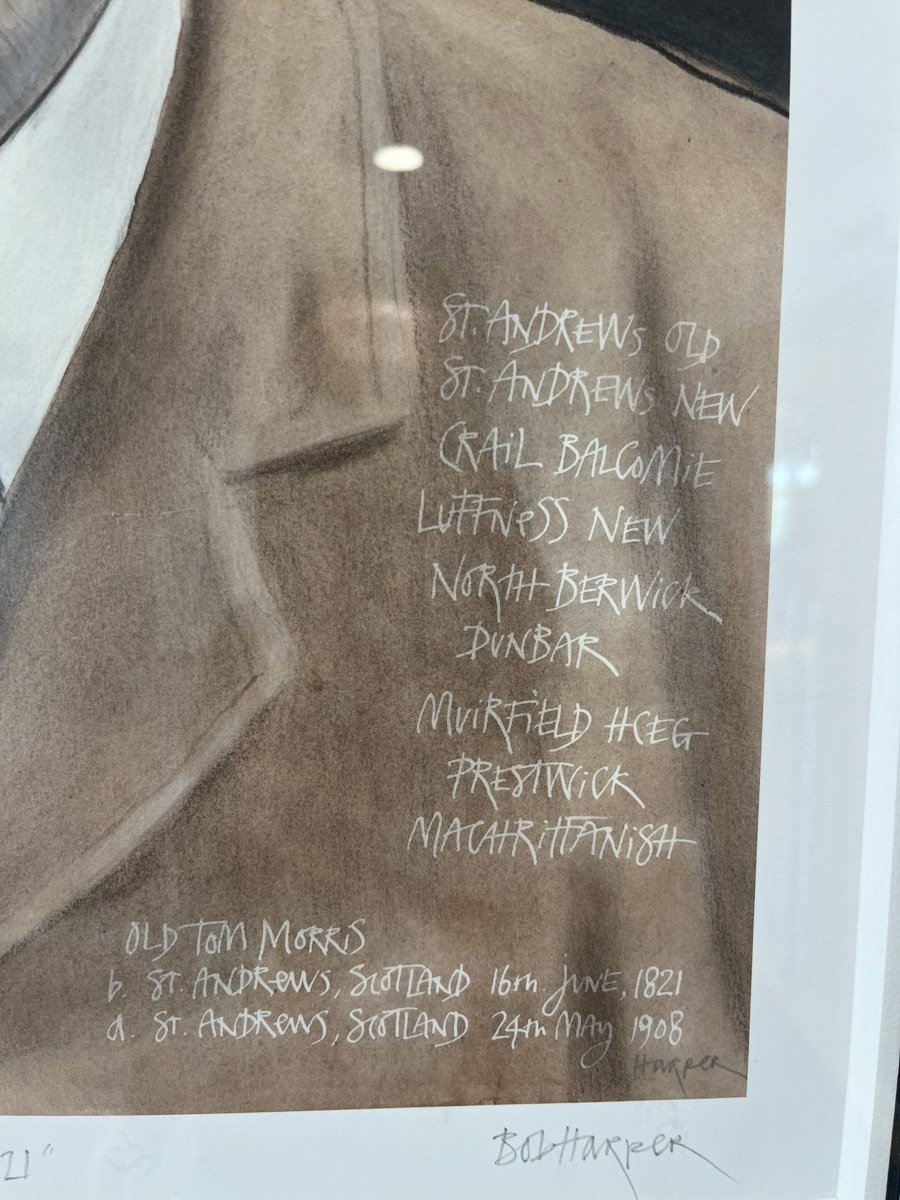 ST. ANDREWS OLD
ST. ANDREWS NEW
CRAIL BALCOMIE
LUFFNESS NEW
NORTH BERWICK
DUNBAR
MUIRFIELD HCEG
PRESTWICK
MACHRIHANISH
OLD TOM MORRIS
b. ST. ANDREWS, SCOTLAND 16th JUNE, 1821
d. ST. ANDREWS, SCOTLAND 24th MAY 1908
Harper
21"
Bob Harper